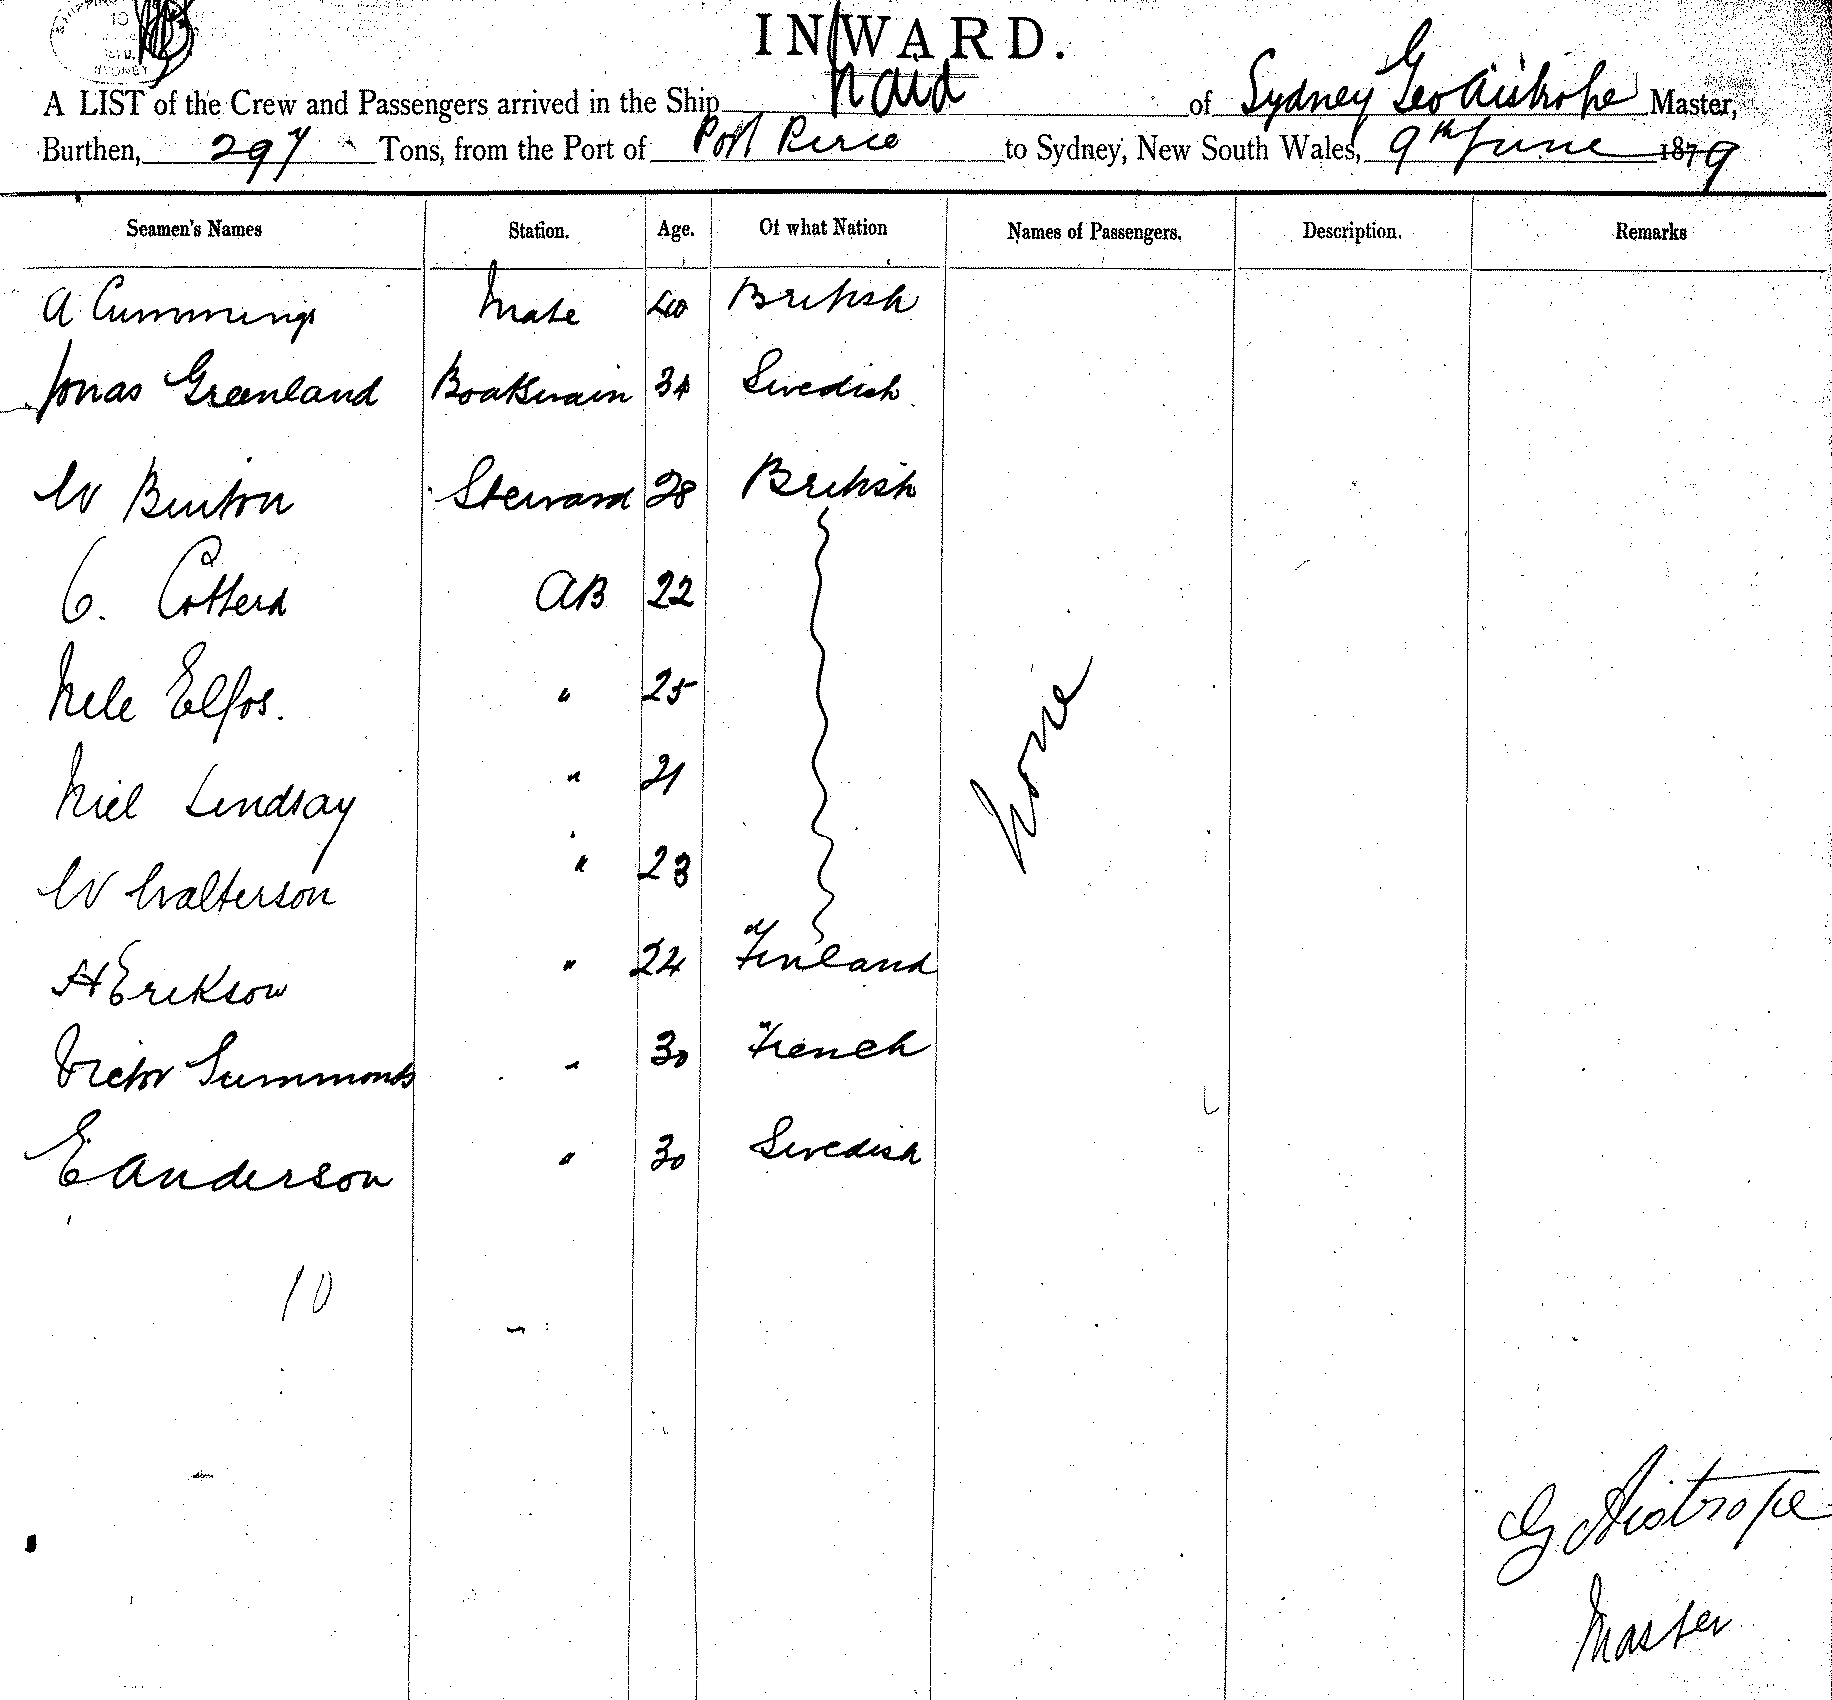 INWARD.
A LIST of the Crew and Passengers arrived in the Ship Naid of Sydney Geo Aistrope Master,
Burthen, 297 Tons, from the Port of Port Pirie to Sydney, New South Wales, 9th June 1879
Seamen's Names Station. Age. Of what Nation Names of Passengers. Description. Remarks
A Cummings Mate 40 British
Jonas Greenland Boatswain 34 Swedish
W Benton Steward 28 British
C. Cotterd AB 22
Nele Elfos. " 25
Niel Lindsay " 21
W Walterson " 23
H Erikson " 24 Finland
Victor Summonds " 30 French
E Anderson " 30 Swedish
none
10
G Aistrope
Master